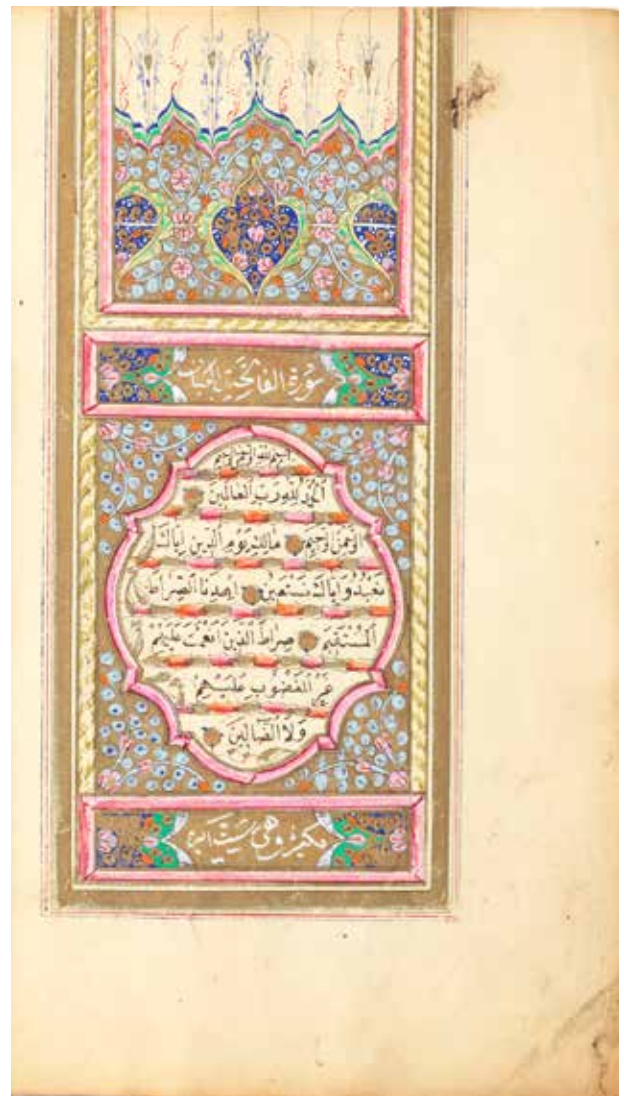 سورة الفاتحة الكتاب
بسم الله الرحمن الرحيم
الحمد لله رب العالمين
الرحمن الرحيم مالك يوم الدين اياك
نعبد و اياك نستعين اهدنا الصراط
المستقيم صراط الذين انعمت عليهم
غير المغضوب عليهم
ولا الضالين
مكية وهي